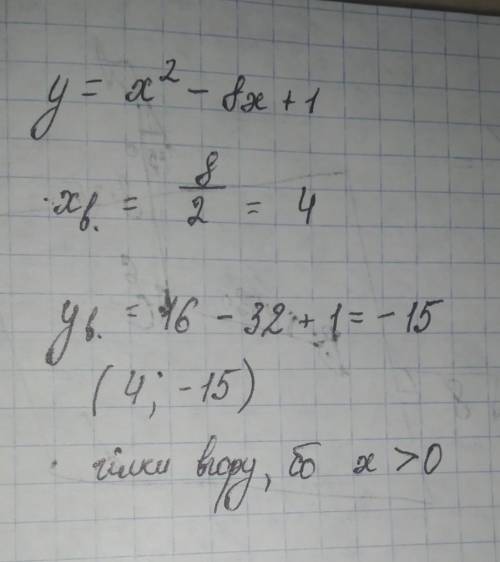 y = x² - 8x + 1
x в. = 8/2 = 4
y в. = 16 - 32 + 1 = -15
(4; -15)
гілки вгору, бо x > 0